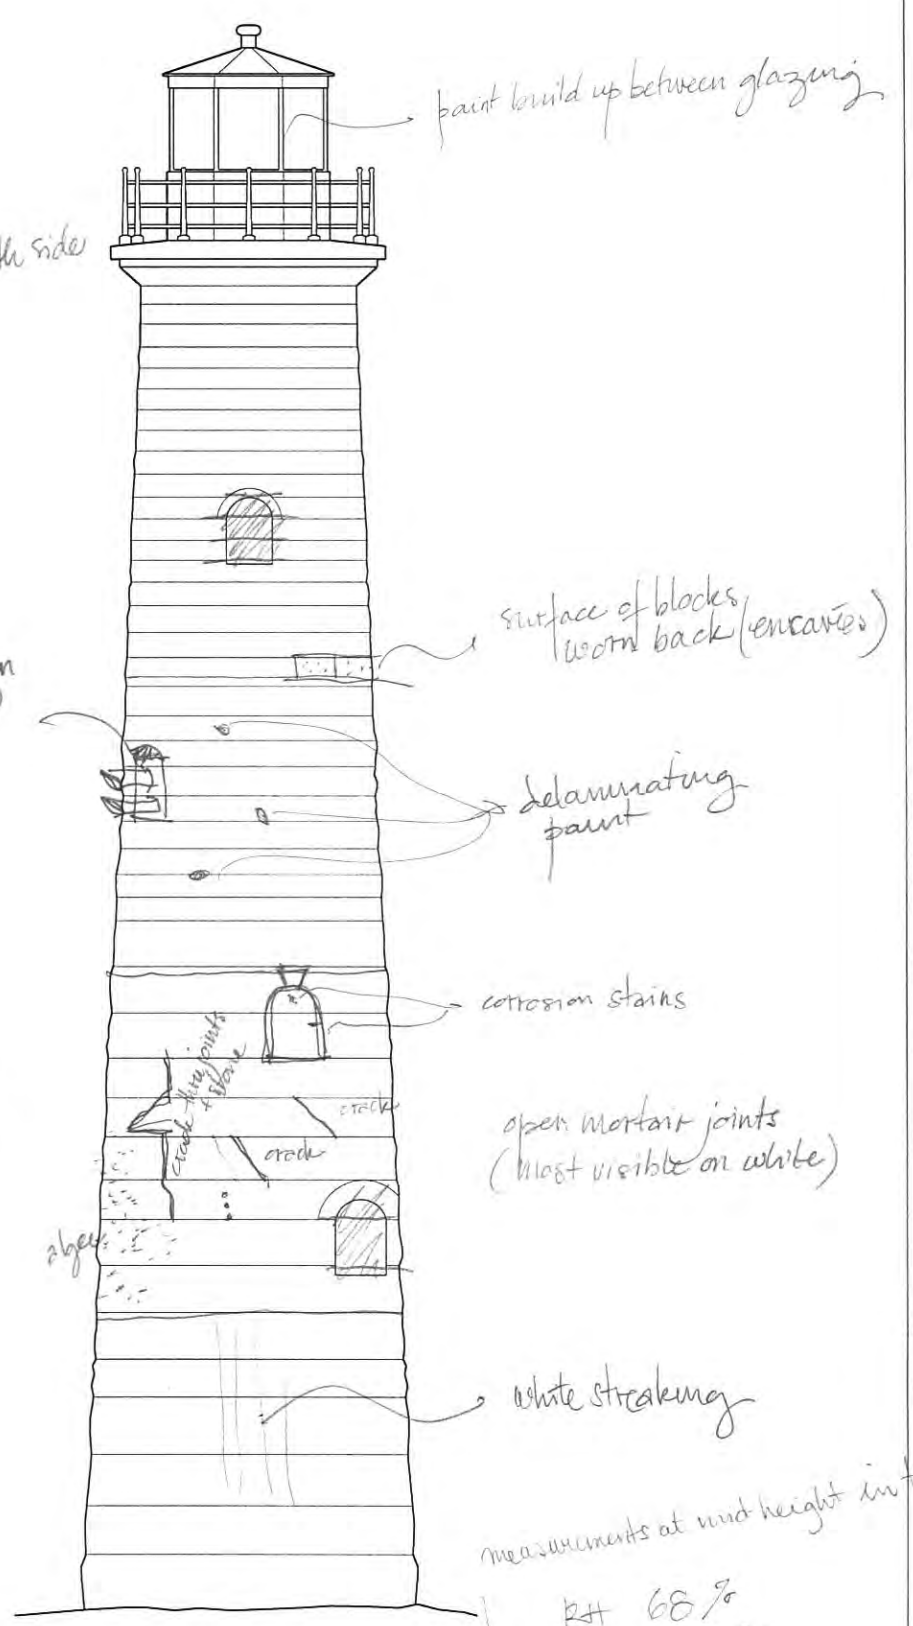 paint build up between glazing
side
surface of blocks
worn back (encavées)
delaminating
paint
corrosion stains
crack thru joints
+ stone
crack
crack
open mortair joints
(most visible on white)
algae
white streaking
measurements at mid height in
RH 68%